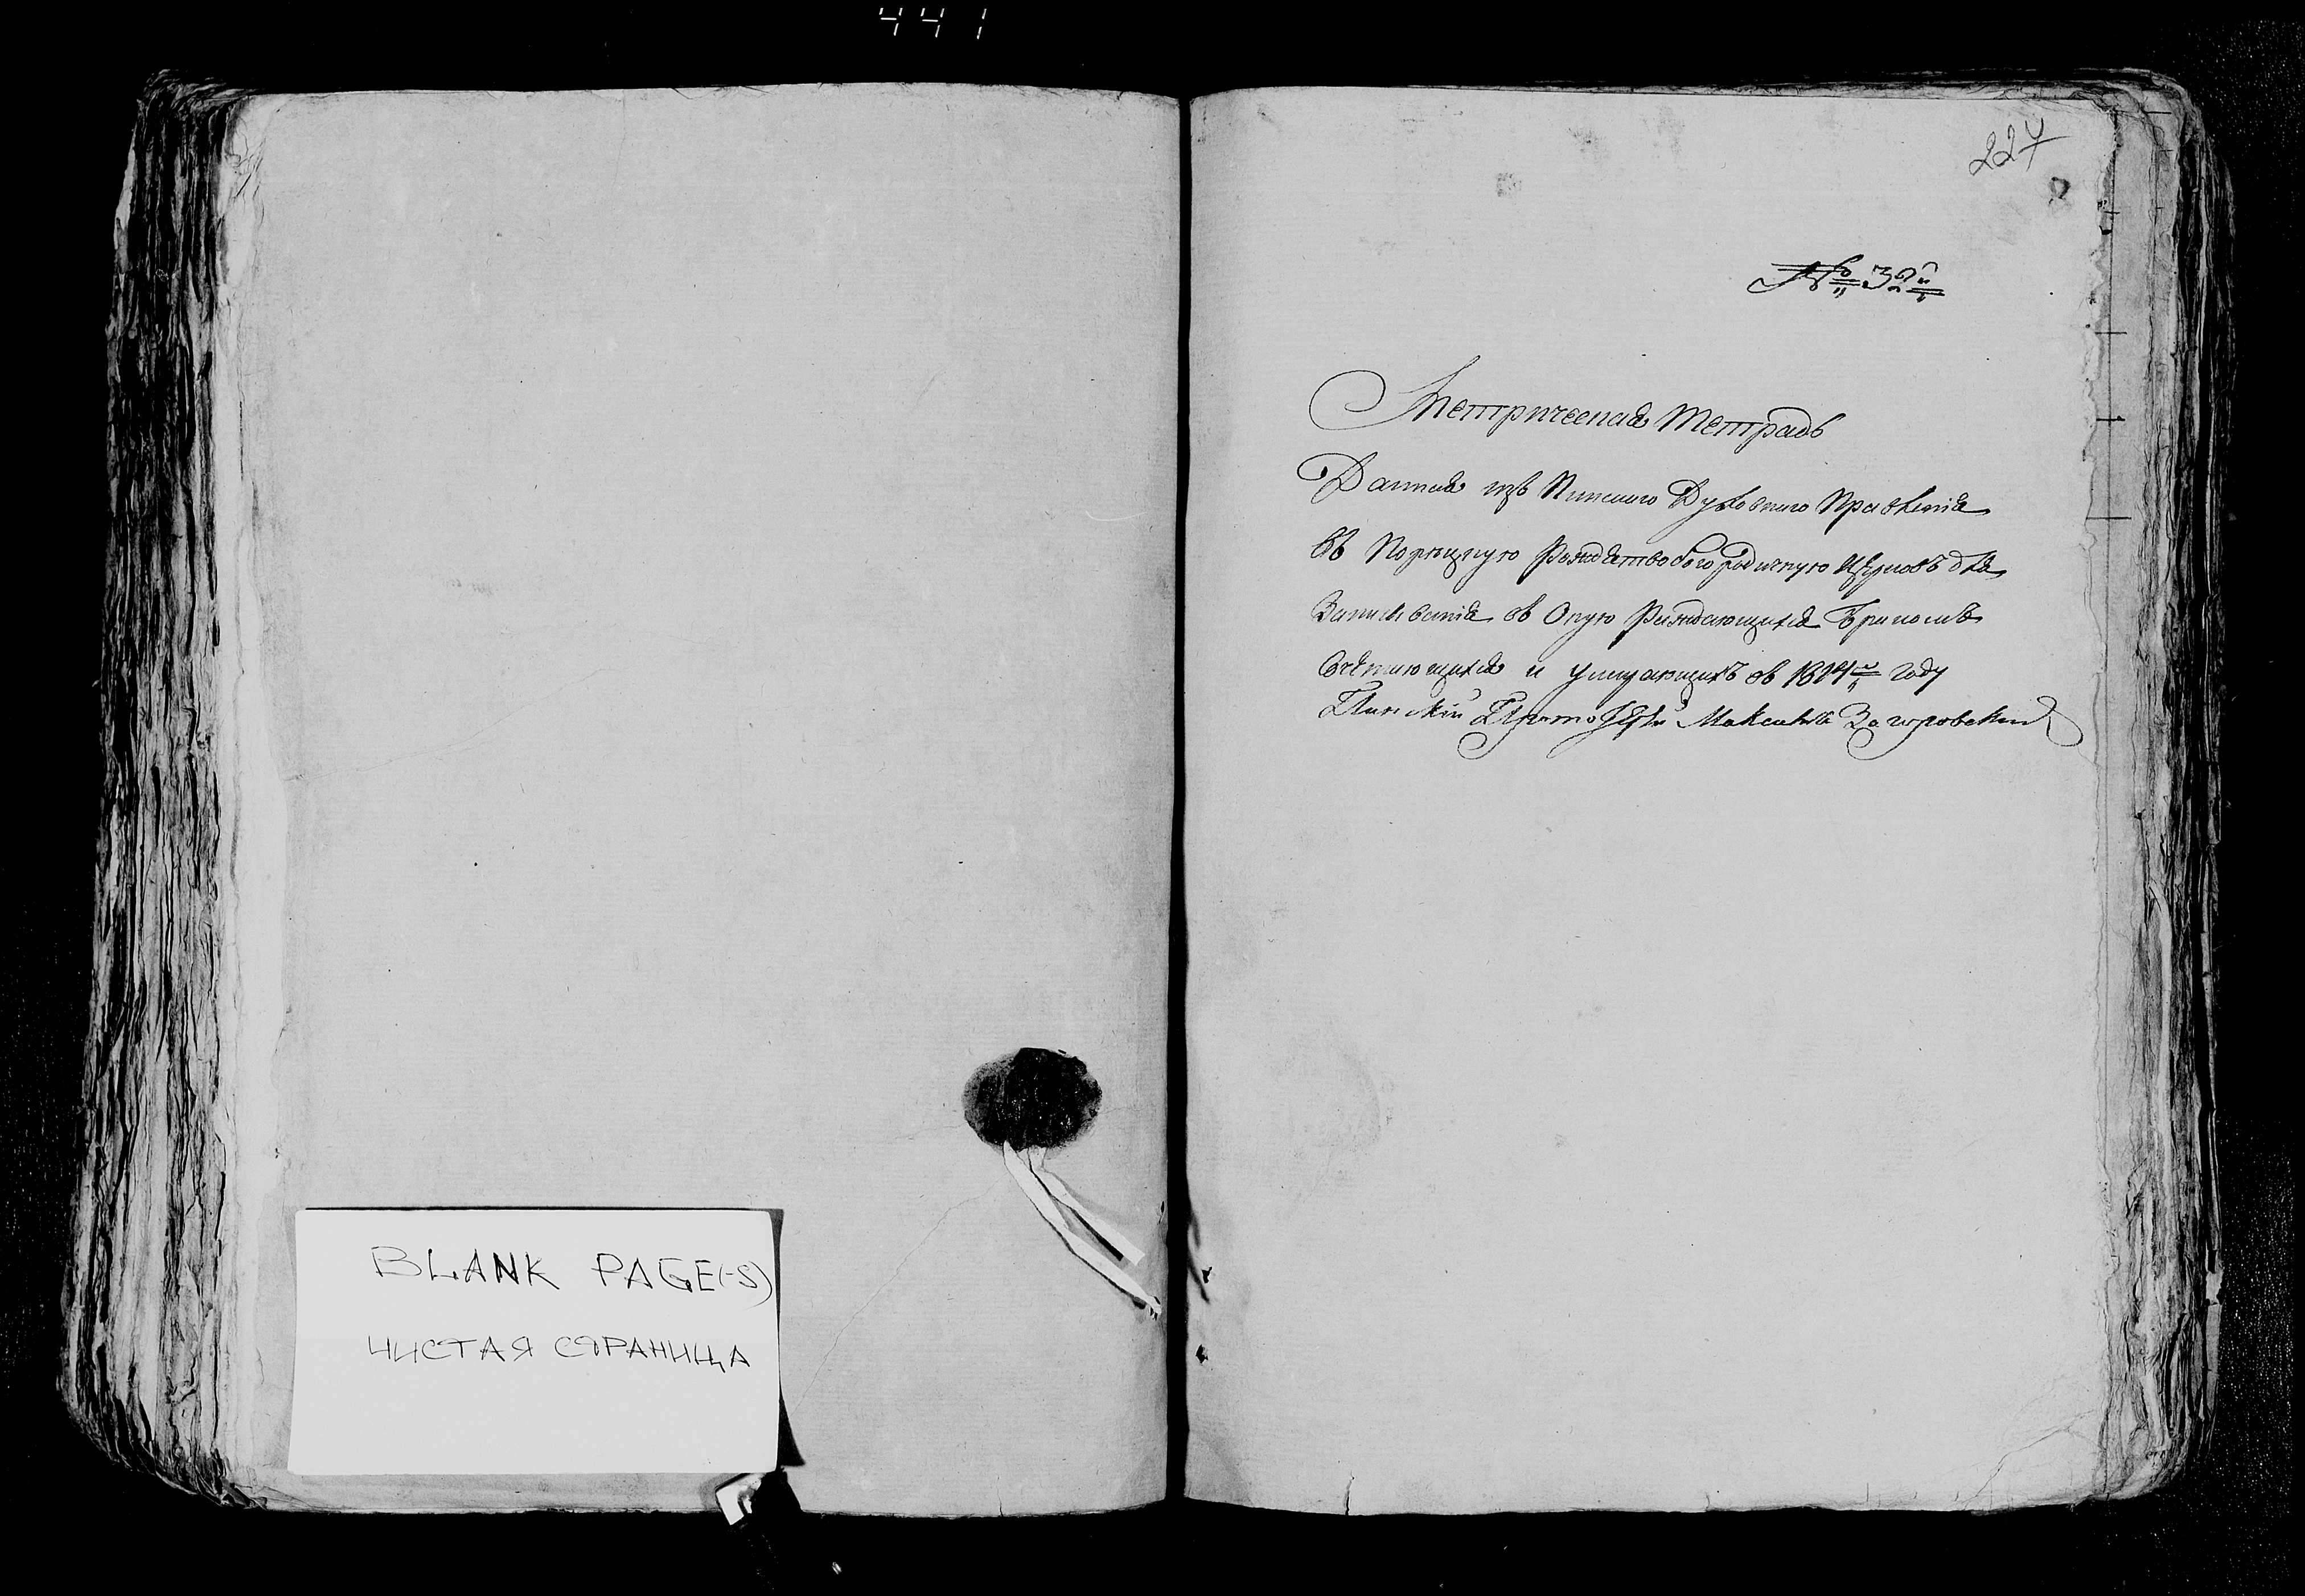 441
BLANK PAGE(-S)
ЧИСТАЯ СТРАНИЦА
224
№ 32й
Метрическая тетрадь
Данная изъ Пинского Духовного Правления
въ Порѣцкую Рождество Богородичную Церковь для
Записования въ Оную Рождающихся Бракомъ
Сочетающихся и умирающихъ въ 1814м году
Пинский Прото Максимъ